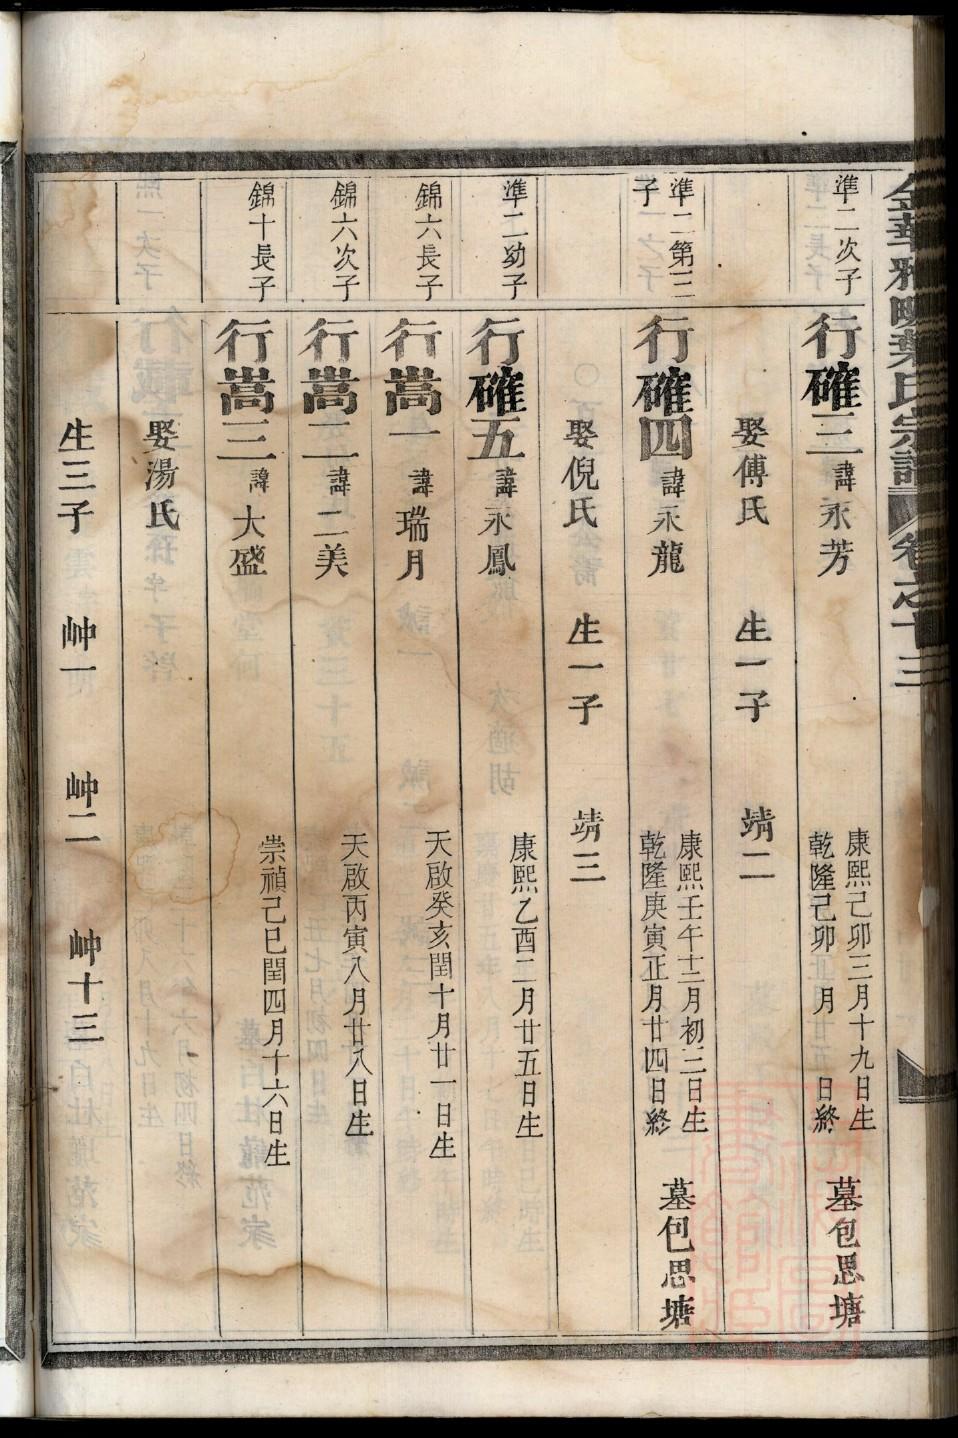 金華雅畈葉氏宗譜 卷之十三
準二次子
行確三 諱永芳 康熙己卯三月十九日生 乾隆己卯 月 日終 墓包思塘
娶傅氏 生一子 靖二
準二第三子
行確四 諱永龍 康熙壬午十二月初三日生 乾隆庚寅正月廿四日終 墓包思塘
娶倪氏 生一子 靖三
準二幼子
行確五 諱永鳳 康熙乙酉二月廿五日生
錦六長子
行嵩一 諱瑞月 天啟癸亥閏十月廿一日生
錦六次子
行嵩二 諱二美 天啟丙寅八月廿八日生
錦十長子
行嵩三 諱大盛 崇禎己巳閏四月十六日生
娶湯氏
生三子 𡶴一 𡶴二 𡶴十三